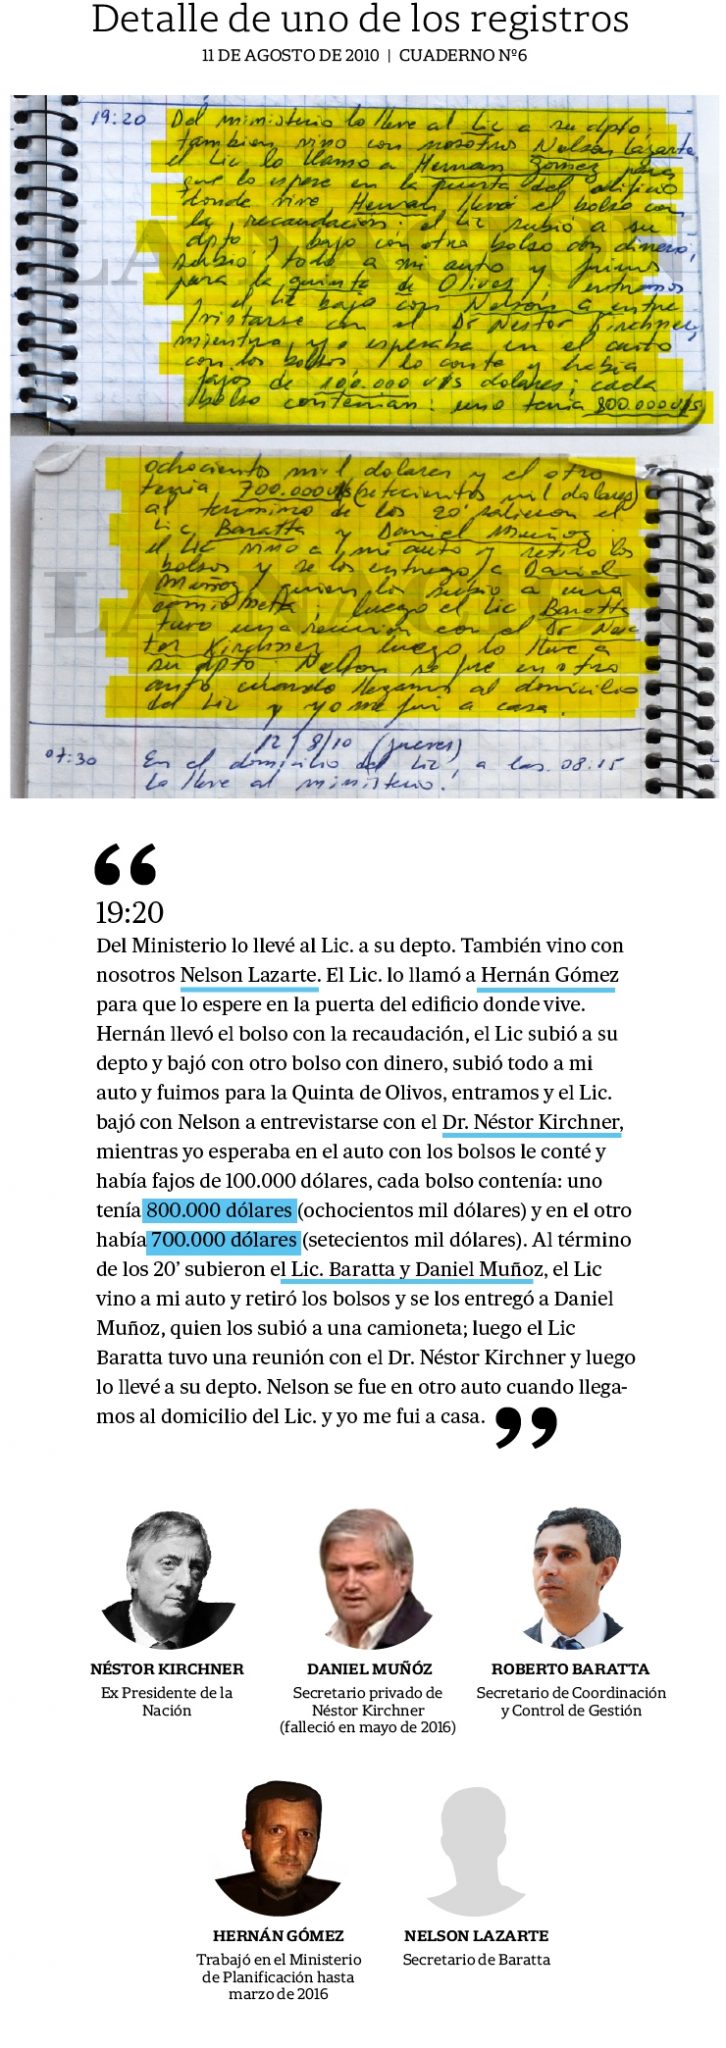 Detalle de uno de los registros
11 DE AGOSTO DE 2010 | CUADERNO Nº6
19:20 Del ministerio lo lleve al Lic a su dpto,
tambien vino con nosotros Nelson Lazarte,
el Lic lo llamo a Hernan Gomez para
que lo espere en la puerta del edificio
donde vive Hernan llevó el bolso con
la recaudacion; el Lic subió a su
dpto y bajo con otro bolso con dinero,
subió todo a mi auto y fuimos
para la quinta de Olivos; entramos
y el Lic bajo con Nelson a entre
vistarse con el Dr Nestor Kirchner,
mientras yo esperaba en el auto
con los bolsos, lo conte y habia
fajos de 100.000 U/S dolares; cada
bolso contenian: uno tenia 800.000 U/S
LA NACION
ochocientos mil dolares y el otro
tenia 700.000 U/S (setecientos mil dolares)
al termino de los 20' salieron el
Lic Baratta y Daniel Muñoz;
el Lic vino a mi auto y retiro los
bolsos y se los entrego a Daniel
Muñoz, quien los subio a una
camioneta; luego el Lic Baratta
tuvo una reunion con el Dr Nes
tor Kirchner y luego lo lleve a
su dpto. Nelson se fue en otro
auto cuando llegamos al domicilio
del Lic y yo me fui a casa.
LA NACION
12/8/10 (jueves)
07:30 En el domicilio del Lic, a las 08:15
lo lleve al ministerio.
“
19:20
Del Ministerio lo llevé al Lic. a su depto. También vino con
nosotros Nelson Lazarte. El Lic. lo llamó a Hernán Gómez
para que lo espere en la puerta del edificio donde vive.
Hernán llevó el bolso con la recaudación, el Lic subió a su
depto y bajó con otro bolso con dinero, subió todo a mi
auto y fuimos para la Quinta de Olivos, entramos y el Lic.
bajó con Nelson a entrevistarse con el Dr. Néstor Kirchner,
mientras yo esperaba en el auto con los bolsos le conté y
había fajos de 100.000 dólares, cada bolso contenía: uno
tenía 800.000 dólares (ochocientos mil dólares) y en el otro
había 700.000 dólares (setecientos mil dólares). Al término
de los 20’ subieron el Lic. Baratta y Daniel Muñoz, el Lic
vino a mi auto y retiró los bolsos y se los entregó a Daniel
Muñoz, quien los subió a una camioneta; luego el Lic
Baratta tuvo una reunión con el Dr. Néstor Kirchner y luego
lo llevé a su depto. Nelson se fue en otro auto cuando llega-
mos al domicilio del Lic. y yo me fui a casa. ”
NÉSTOR KIRCHNER
Ex Presidente de la
Nación
DANIEL MUÑÓZ
Secretario privado de
Néstor Kirchner
(falleció en mayo de 2016)
ROBERTO BARATTA
Secretario de Coordinación
y Control de Gestión
HERNÁN GÓMEZ
Trabajó en el Ministerio
de Planificación hasta
marzo de 2016
NELSON LAZARTE
Secretario de Baratta